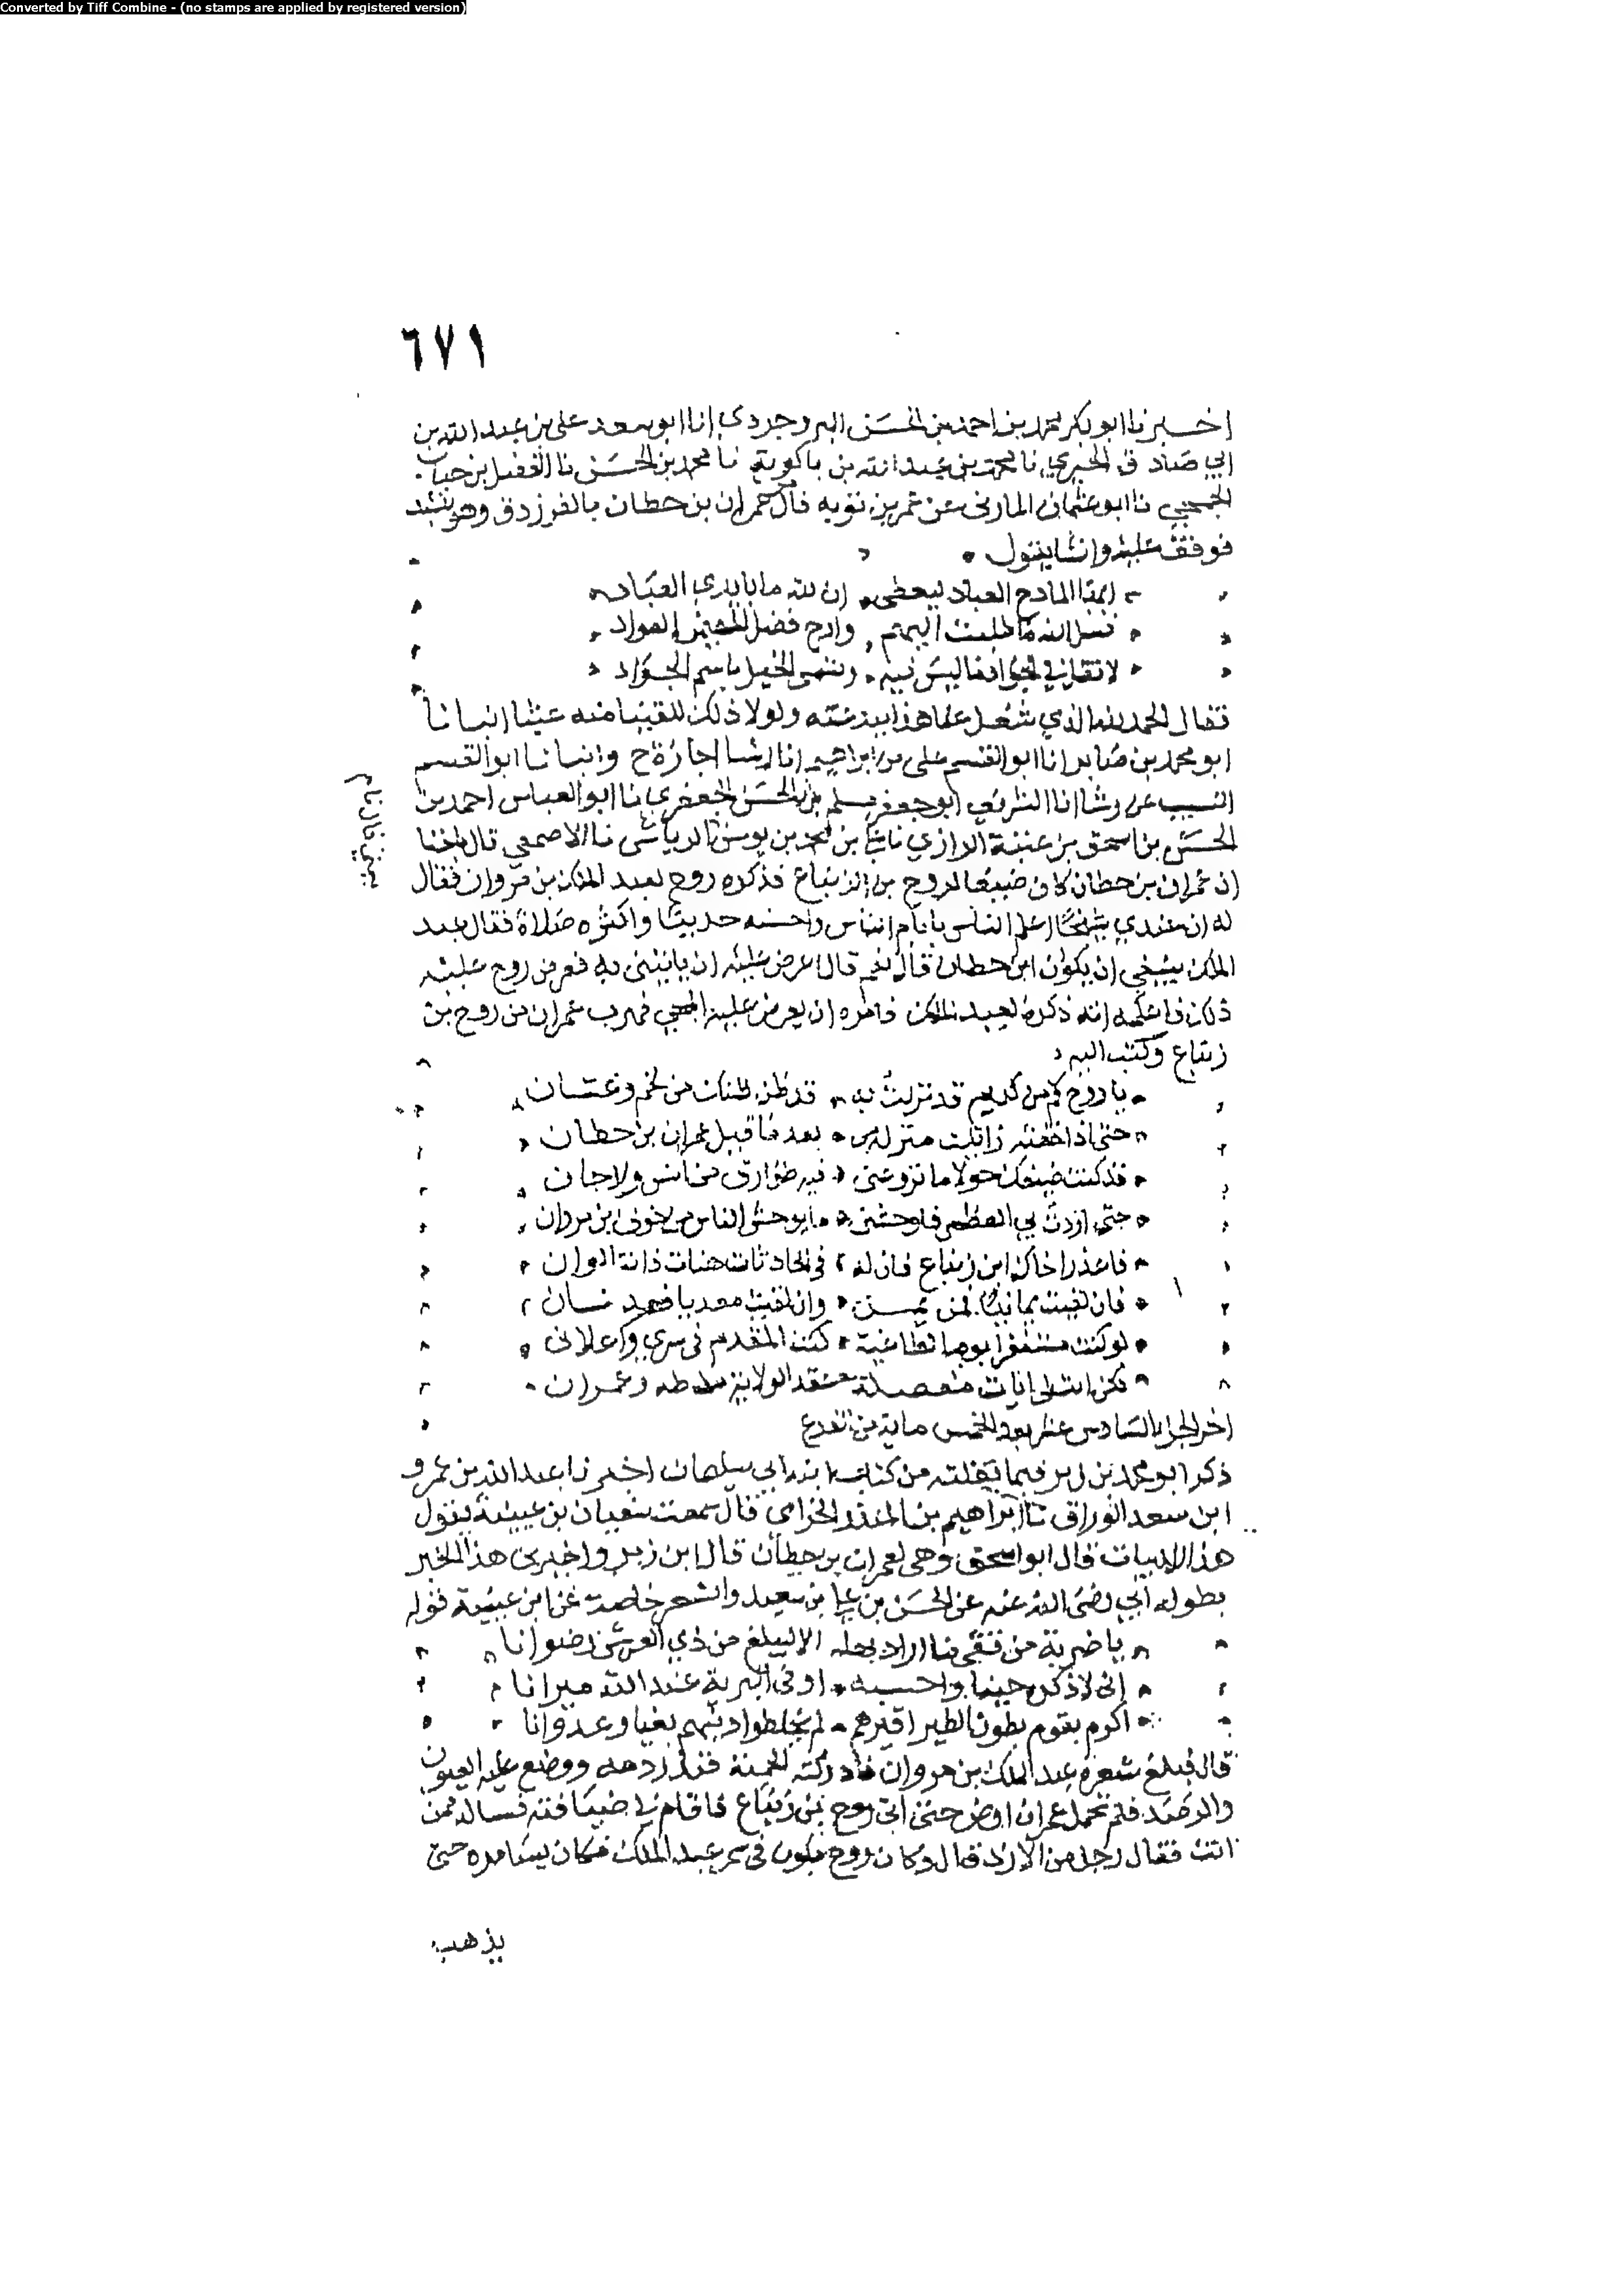 Converted by Tiff Combine - (no stamps are applied by registered version)
٦٧١
اخبرنا ابو بكر محمد بن احمد بن الحسن البروجردي انا ابو سعد علي بن عبد الله بن
ابي صادق الحيري نا محمد بن عبد الله بن باكويه نا محمد بن الحسن نا الفضل بن حباب
الجمحي نا ابو عثمان المازني عن عمر بن قال عمران بن حطان بالفرزدق وهو ينشد
فوقف عليه وانشا يقول
ايها المادح العباد ليعطى ان لله ما بايدي العباد
فسل الله ما طلبت اليهم وارج فضل العواد
لا تقل في الجواد ما ليس فيه وتسمى البخيل باسم الجواد
فقال الحمد لله الذي شغل عنا هذا ببدعته ولولا ذلك للقينا منه انبانا
ابو محمد بن صابر انا ابو القسم علي بن ابراهيم انا رشا اجازة ح وانبانا ابو القسم
النسيب عن رشا انا الشريف ابو جعفر مسلم بن الحسن الجعفري نا ابو العباس احمد بن
الحسن بن اسحق بن عتبة الرازي نا بن الرياشي نا الاصمعي قال بلغنا
ان عمران بن حطان كان ضيفا لروح بن زنباع فذكره روح لعبد الملك بن مروان فقال
له ان عندي شيخا اعلم الناس بايام الناس واحسنه حديثا واكثره صلاة فقال عبد
الملك ينبغي ان يكون ابن حطان قال نعم قال اعرض عليه ان ياتيني به فعرض روح عليه
ذلك فاعلمه انه ذكره لعبد الملك فامره ان يعرض عليه المجي فهرب عمران من روح بن
زنباع وكتب اليه
يا روح كم من كريم قد نزلت به قد ظن ظنك من لخم وغسان
حتى اذا خفته زايلت منزله من بعد ما قيل عمران بن حطان
قد كنت ضيفك حولا ما تروعني فيه طوارق من انس ولا جان
حتى اردت بي العظمى فاوحشني ما يوحش الناس من خوف ابن مروان
فاعذر اخاك ابن زنباع فان له في الحادثات هنات ذات الوان
فان لقيت يمانيا فمن يمن وان لقيت معديا فعدنان
لو كنت مستغفرا يوما لطاغية كنت المقدم في سري واعلاني
لكن ايات مفصلة عقد الولاية طه وعمران
اخر الجزء السادس عشر بعد الخمس ماية من الفرع
ذكر ابو محمد بن زبر فيما نقلته من كتاب ابنه ابي سليمان اخبرنا عبد الله بن عمرو
ابن سعد الوراق نا ابراهيم بن المنذر الحزامي قال سمعت سفيان بن عيينة يقول
هذا الابيات قال ابو اسحق وهي لعمران بن حطان قال ابن زبر واخبرني هذا الخبر
بطوله ابي رضي الله عنه عن الحسن بن علي بن سعيد والشعر خاصة عن ابن عيينة قوله
يا ضربة من تقي ما اراد بها الا ليبلغ من ذي العرش رضوانا
اني لاذكره حينا واحسبه اوفى البرية عند الله ميزانا
اكرم بقوم بطون الطير اقبرهم لم يخلطوا دينهم بغيا وعدوانا
قال فبلغ شعره عبد الملك بن مروان فادركته الحمية فنذر دمه ووضع عليه العيون
والرصد فلم تحمل عمران ارض حتى اتى روح بن زنباع فاقام في ضيافته فساله ممن
انت فقال رجل من الازد قال وكان روح يكون في سمر عبد الملك فكان يسامره حتى
يذهب